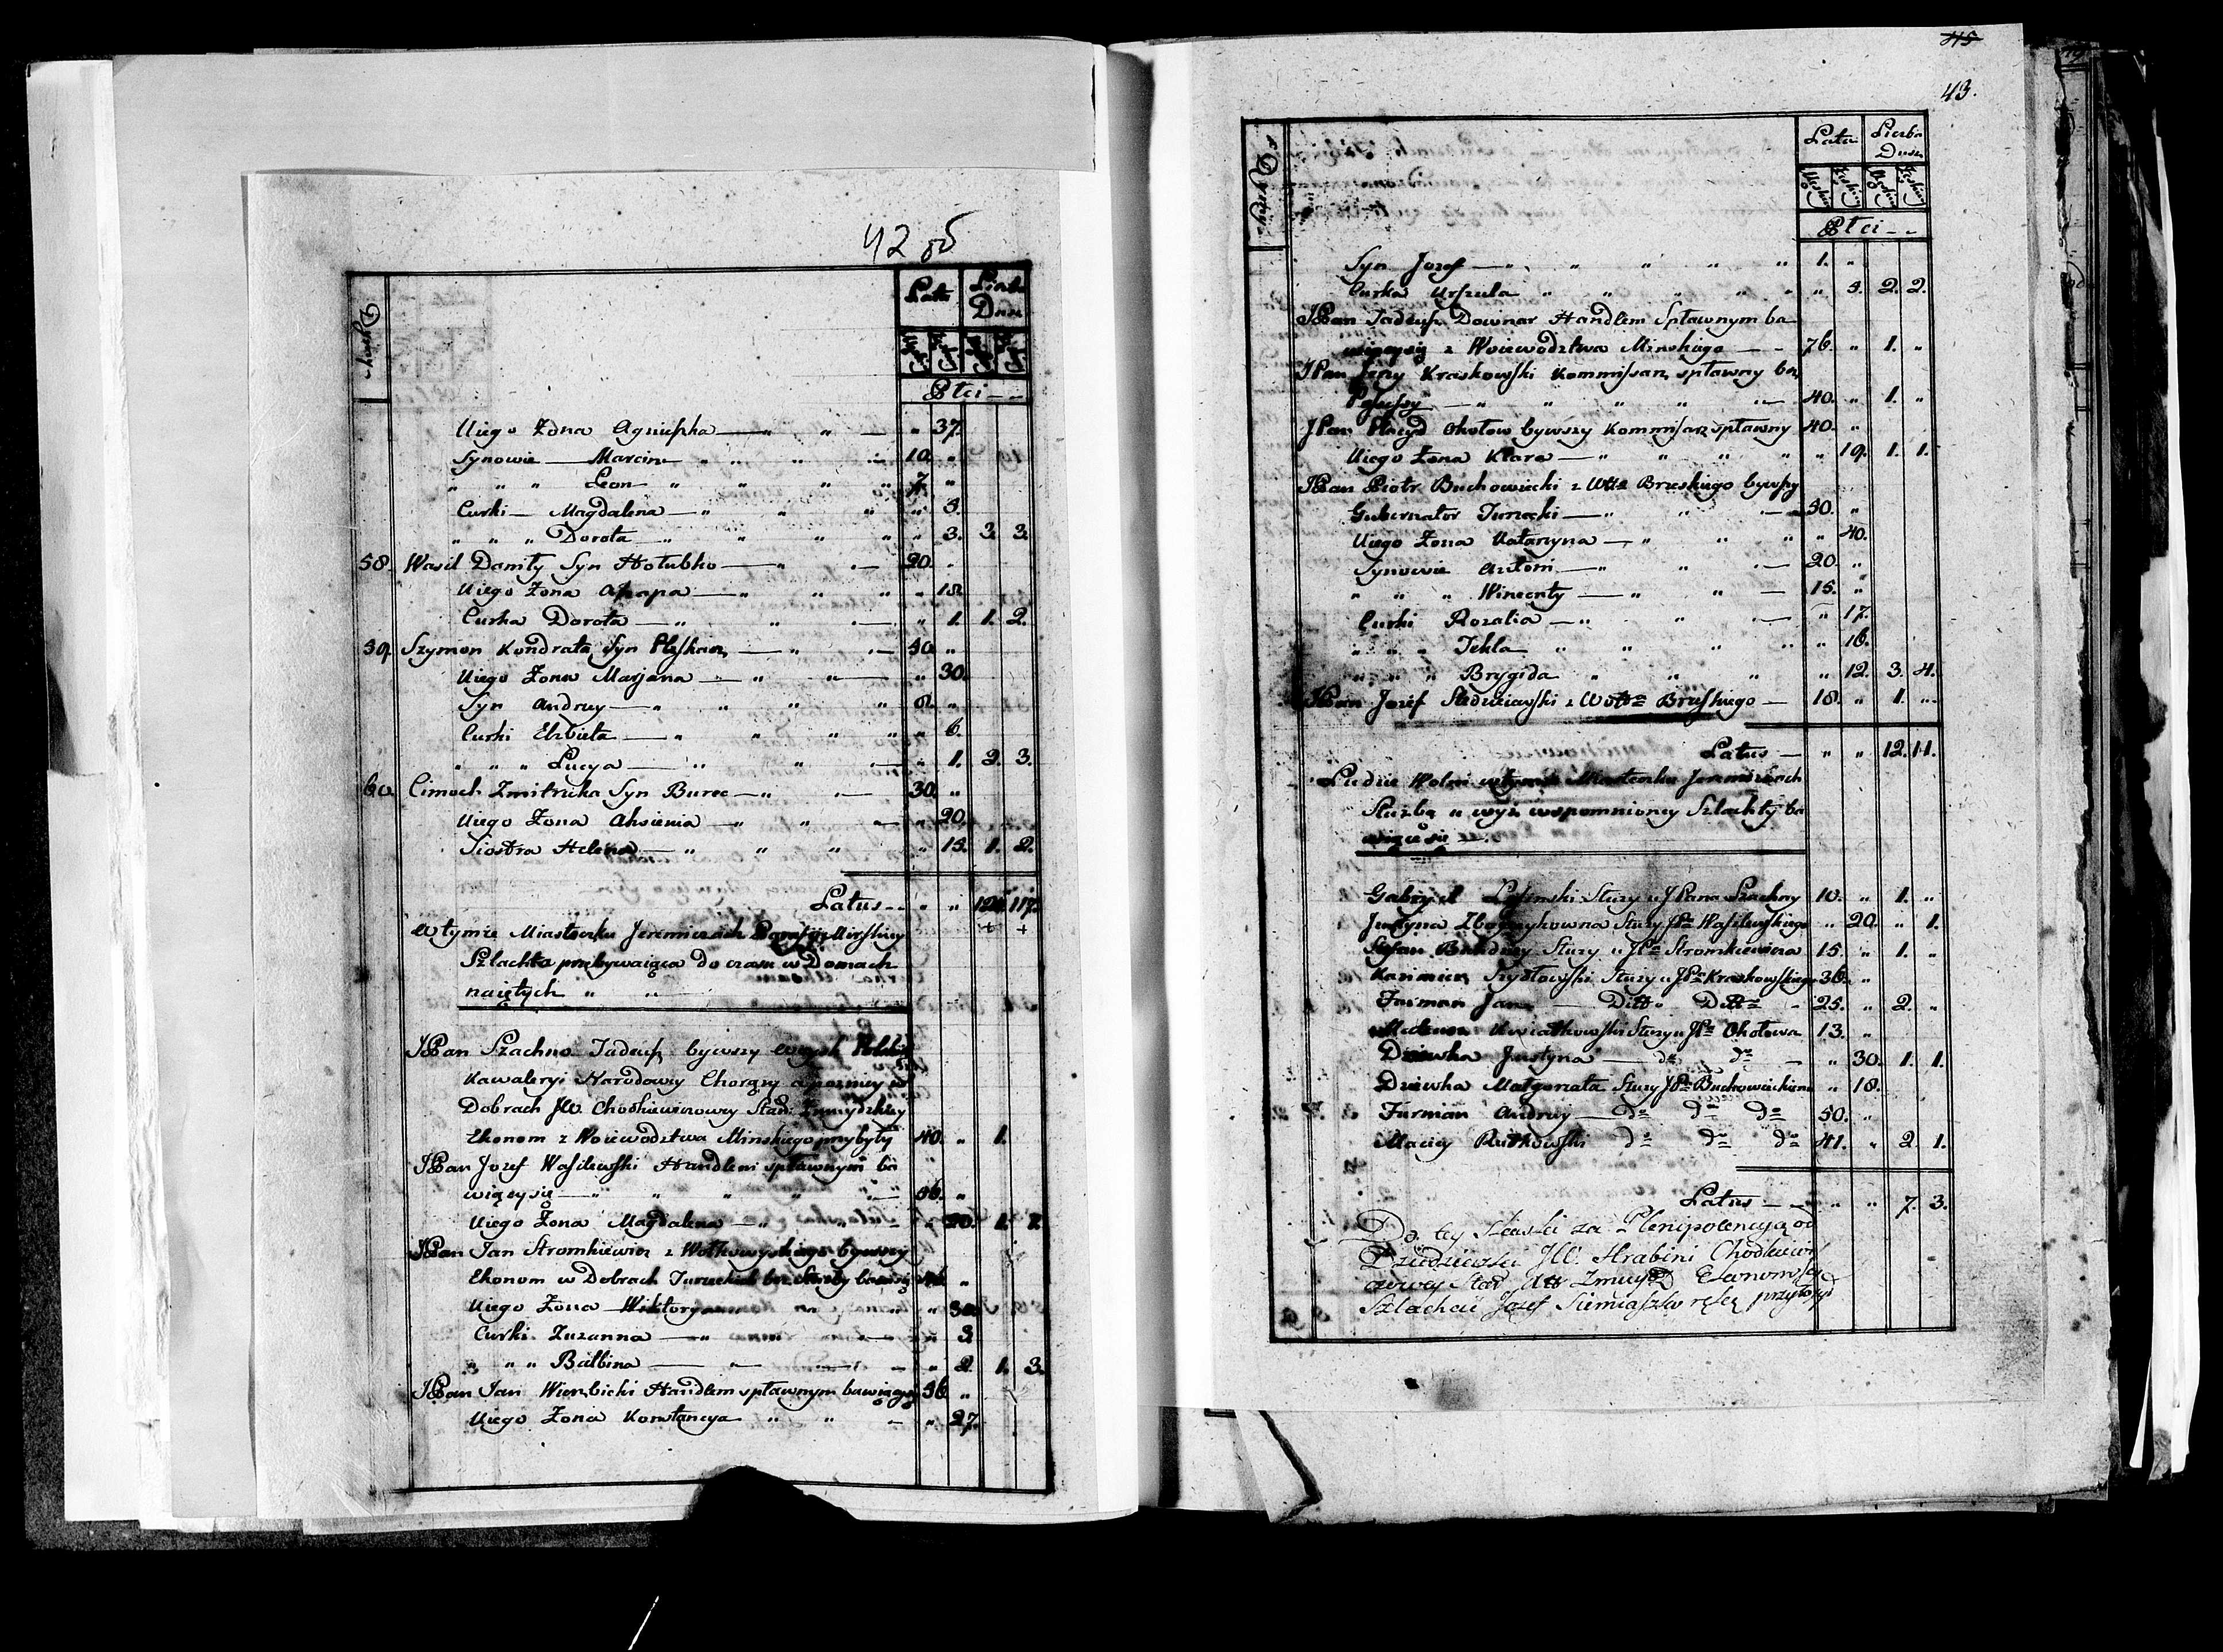 42 об
Dymy
Lata
Liczba
Dusz
Płci
Uiego Żona Agnieszka 37.
Synowie Marcin 10. "
" " " Leon 7. "
Curki Magdalena " 5.
" " " Dorota " 3. 3. 3.
58. Wasil Daniły Syn Hołubko 20. "
Uiego Żona Ahapa " 18.
Curka Dorota " 1. 1. 2.
59. Szymon Kondrata Syn 50. "
Uiego Żona Marjana " 30.
Syn Andrey 8. "
Curki Elżbieta " 6.
" " " Lucya " 1. 2. 3.
60. Cimoch Zmitruka Syn Burec 30. "
Uiego Żona Ahsienia " 20.
Siostra Helena " 15. 1. 2.
Latus " " 117.
w tymże Miasteczku Jeremiczach Parafij Mirskiey
Szlachta przebywaiąca do czasu w Domach
naiętych " "
JPan Szachno Tadeusz bywszy woysk Polskich
Kawaleryi Narodowey Chorąży a pozniey w
Dobrach JW Chodkiewiczowey Star: Zmuydzkiey
Ekonom z Woiewodztwa Minskiego przybyły 40. " 1.
JPan Jozef Wasilewski Handlem spławnym ba
wiący się 36. "
Uiego Żona Magdalena " 20. 1. 1.
JPan Jan Stromkiewicz z Wołkowyskiego bywszy
Ekonom w Dobrach Tureckich bez służby bawiący "
Uiego Żona Wiktorya " 30.
Curki Zuzanna " 3.
" " " Balbina " 2. 1. 3.
JPan Jan Wierzbicki Handlem spławnym bawiący 36. "
Uiego Żona Konstancya " 27.
45
43.
Dymy
Lata
Liczba
Dusz
Płci
Syn Jozef 1. "
Curka Urszula " 3. 2. 2.
JPan Tadeusz Downar Handlem Spławnym ba
wiący się z Woiewodztwa Minskiego 76. " 1. "
JPan Jerzy Kraskowski Kommissarz spławny bez
40. " 1. "
JPan Placyd Okołow bywszy Kommissarz spławny 40. "
Uiego Żona Klara " 19. 1. 1.
JPan Piotr Buchowiecki z Wttz Brzeskiego bywszy
Gubernator Turecki 50. "
Uiego Żona Katarzyna " 40.
Synowie Antoni 20. "
" " " Wincenty 15. "
Curki Rozalia " 17.
" " " Tekla " 16.
" " " Brygida " 12. 3. 4.
JPan Jozef Śledziewski z Wottwa Brzeskiego 18. " 1. "
Latus " " 12. 11.
Ludzie Wolni w tymże Miasteczku Jeremiczach
Służbą u wyż wspomnioney Szlachty ba
wiące się
Gabryel Służy u JPana Szachny 10. " 1. "
Justyna Służy JPa Wasilewskiego " 20. " 1.
Stefan Służy u JPa Stromkiewicza 15. " 1. "
Kazimierz Szydłowski Służy u JPa Kraskowskiego 36. "
Furman Jan Ditto Ditto 25. " 2. "
Kwiatkowski Służy u JPa Okołowa 13. "
Dziewka Justyna do do " 30. 1. 1.
Dziewka Małgorzata Służy JPa Buchowieckiemu " 18.
Furman Andrzey do do do 50. "
Maciey Rutkowski do do do 41. " 2. 1.
Latus " " 7. 3.
Do tey Skaski za Plenipotencyą od
Dziedziczki JW. Hrabini Chodkiewi
czowey Star Zmuydz Ekonom
Szlachcic Jozef Siemiaszko rękę przyłożył